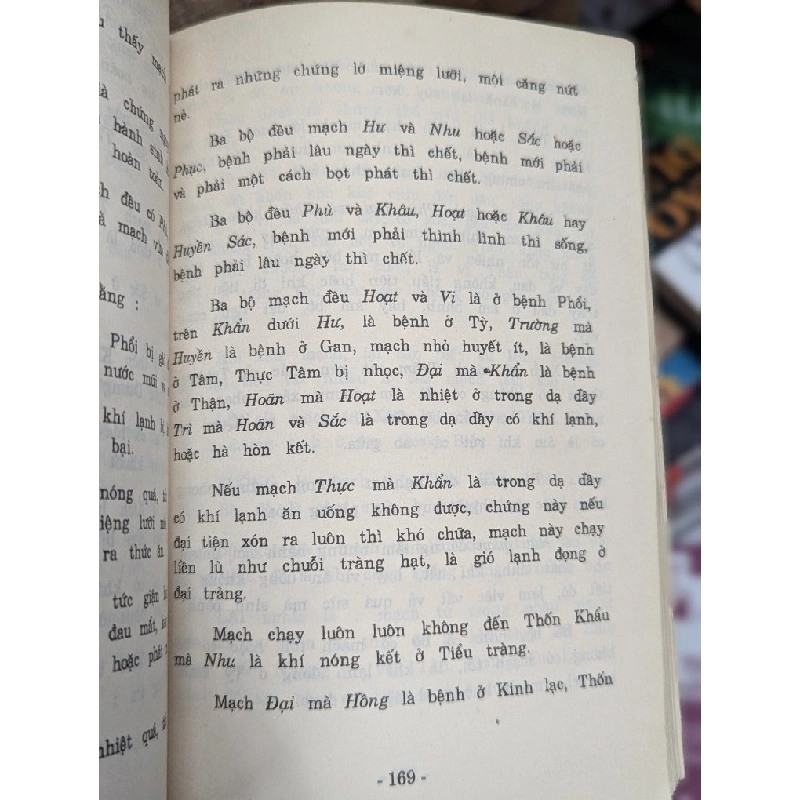 thấy mạch
là chứng
hành sinh
hoàn toàn
đều có
à mạch
ằng :
Phổi bị
nước mũi
khí lạnh
bại.
nóng quá,
miệng lưỡi
ra thức ăn
tức giận
đau mắt,
hoặc phát
nhiệt quá,
phát ra những chứng lở miệng lưỡi, môi căng nứt
nẻ.
Ba bộ đều mạch Hư và Nhu hoặc Sác hoặc
Phục, bệnh phải lâu ngày thì chết, bệnh mới phải
và phải một cách bọt phát thì chết.
Ba bộ đều Phù và Khâu, Hoạt hoặc Khâu hay
Huyền Sác, bệnh mới phải thình lình thì sống,
bệnh phải lâu ngày thì chết.
Ba bộ mạch đều Hoạt và Vi là ở bệnh Phổi,
trên Khẩn dưới Hư, là bệnh ở Tỳ, Trường mà
Huyền là bệnh ở Gan, mạch nhỏ huyết ít, là bệnh
ở Tâm, Thực Tâm bị nhọc, Đại mà Khẩn là bệnh
ở Thận, Hoãn mà Hoạt là nhiệt ở trong dạ dầy
Trì mà Hoãn và Sắc là trong dạ đầy có khí lạnh,
hoặc hà hòn kết.
Nếu mạch Thực mà Khẩn là trong dạ đầy
có khí lạnh ăn uống không được, chứng này nếu
đại tiện xón ra luôn thì khó chữa, mạch này chạy
liền lù như chuỗi tràng hạt, là gió lạnh đọng ở
đại tràng.
Mạch chạy luôn luôn không đến Thốn Khẩu
mà Nhu là khí nóng kết ở Tiểu tràng.
Mạch Đại mà Hồng là bệnh ở Kinh lạc, Thốn
- 169 -